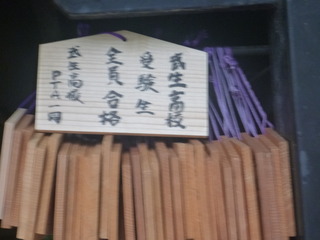 武生高校
受験生
全員合格
武生高校
PTA一同